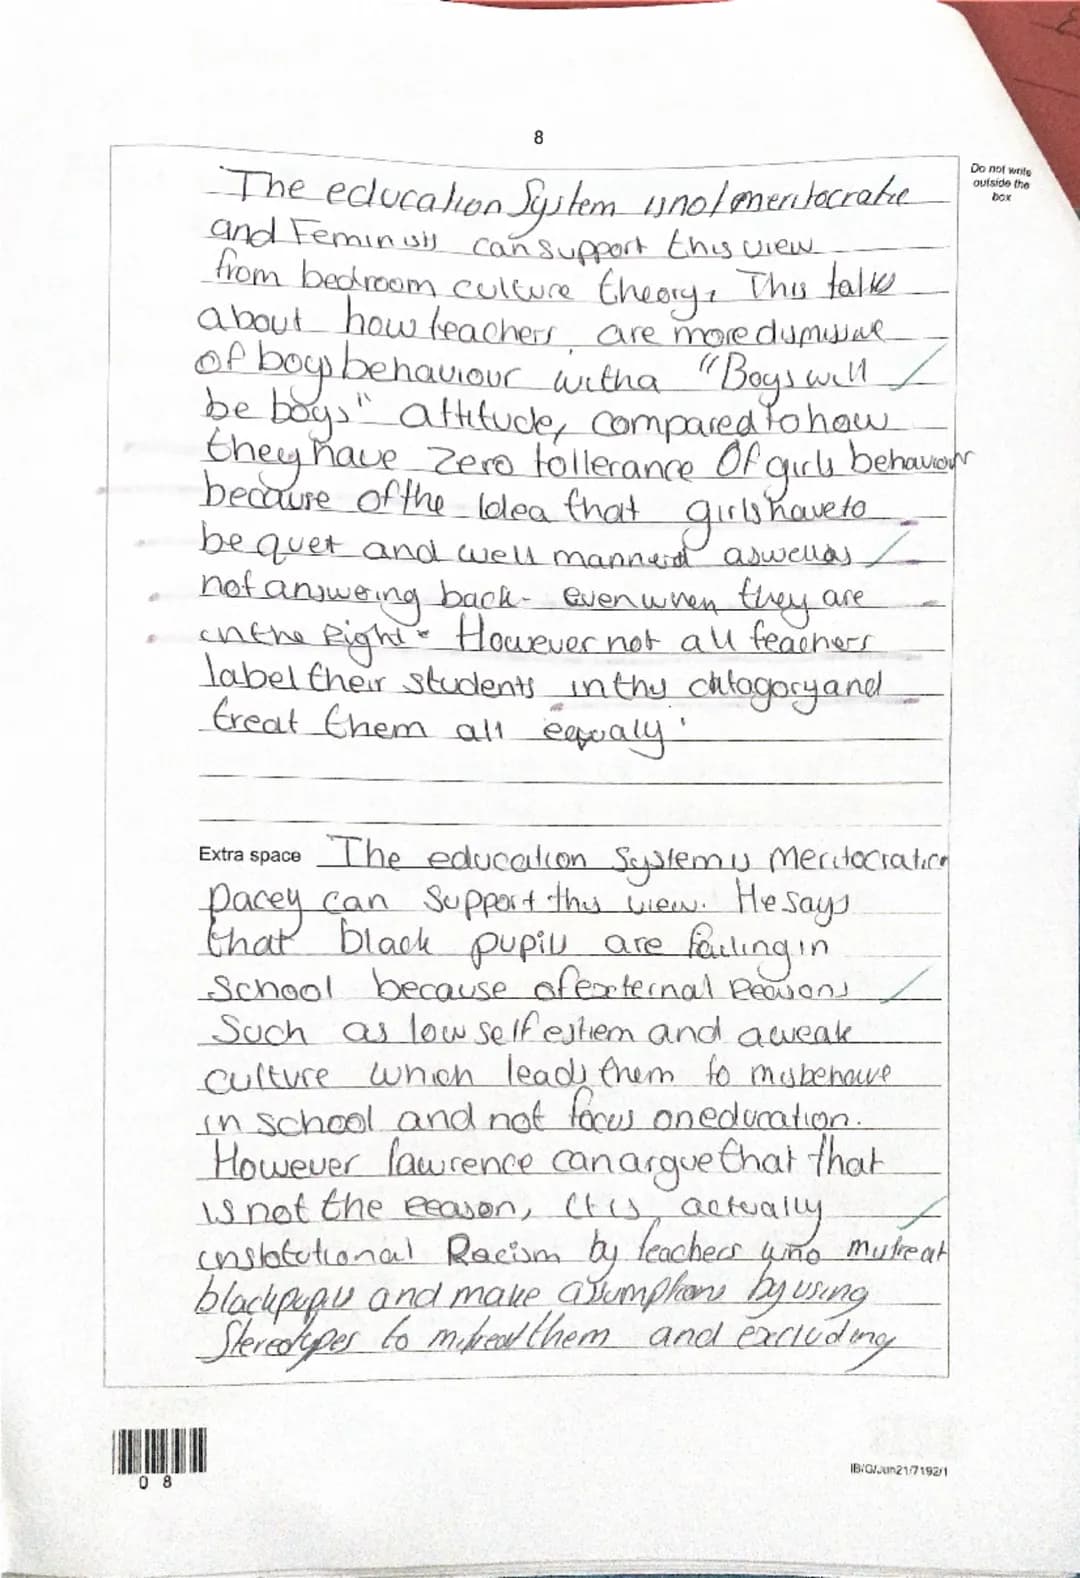 8
Do not write
outside the
box
The education System is not meritocratic
and Feminists can support this view
from bedroom culture theory. This talks
about how teachers are more dismissive
of boys behaviour with a "Boys will
be boys" attitude, compared to how
they have zero tollerance Of girls behaviour
because of the Idea that girls have to
be quet and well mannerd aswell as
not answering back - even when they are
in the Right. However not all teachers
label their students in this catagory and
treat them all eqqualy.
Extra space The education System is Meritocratic
Pacey can Support this view. He says
that black pupils are failing in
School because of external Reasons
Such as low self estiem and a weak
culture which leads them to misbehave
in school and not focus on education.
However lawrence can argue that that
is not the reason, it is actually
institutional Racism by teachers who mistreat
black pupils and make assumptions by using
Stereotypes to mistreat them and excluding
0 8
IB/G/Jun21/7192/1